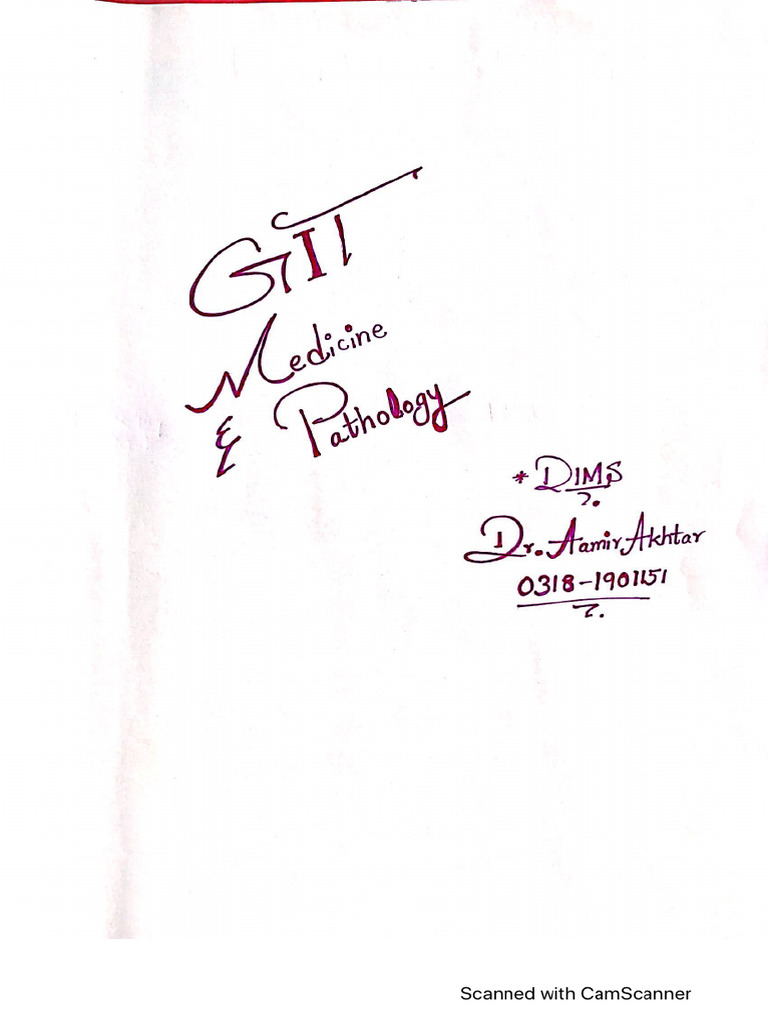 GIT
Medicine
& Pathology
* DIMS
Dr. Aamir Akhtar
0318-1901151
Scanned with CamScanner